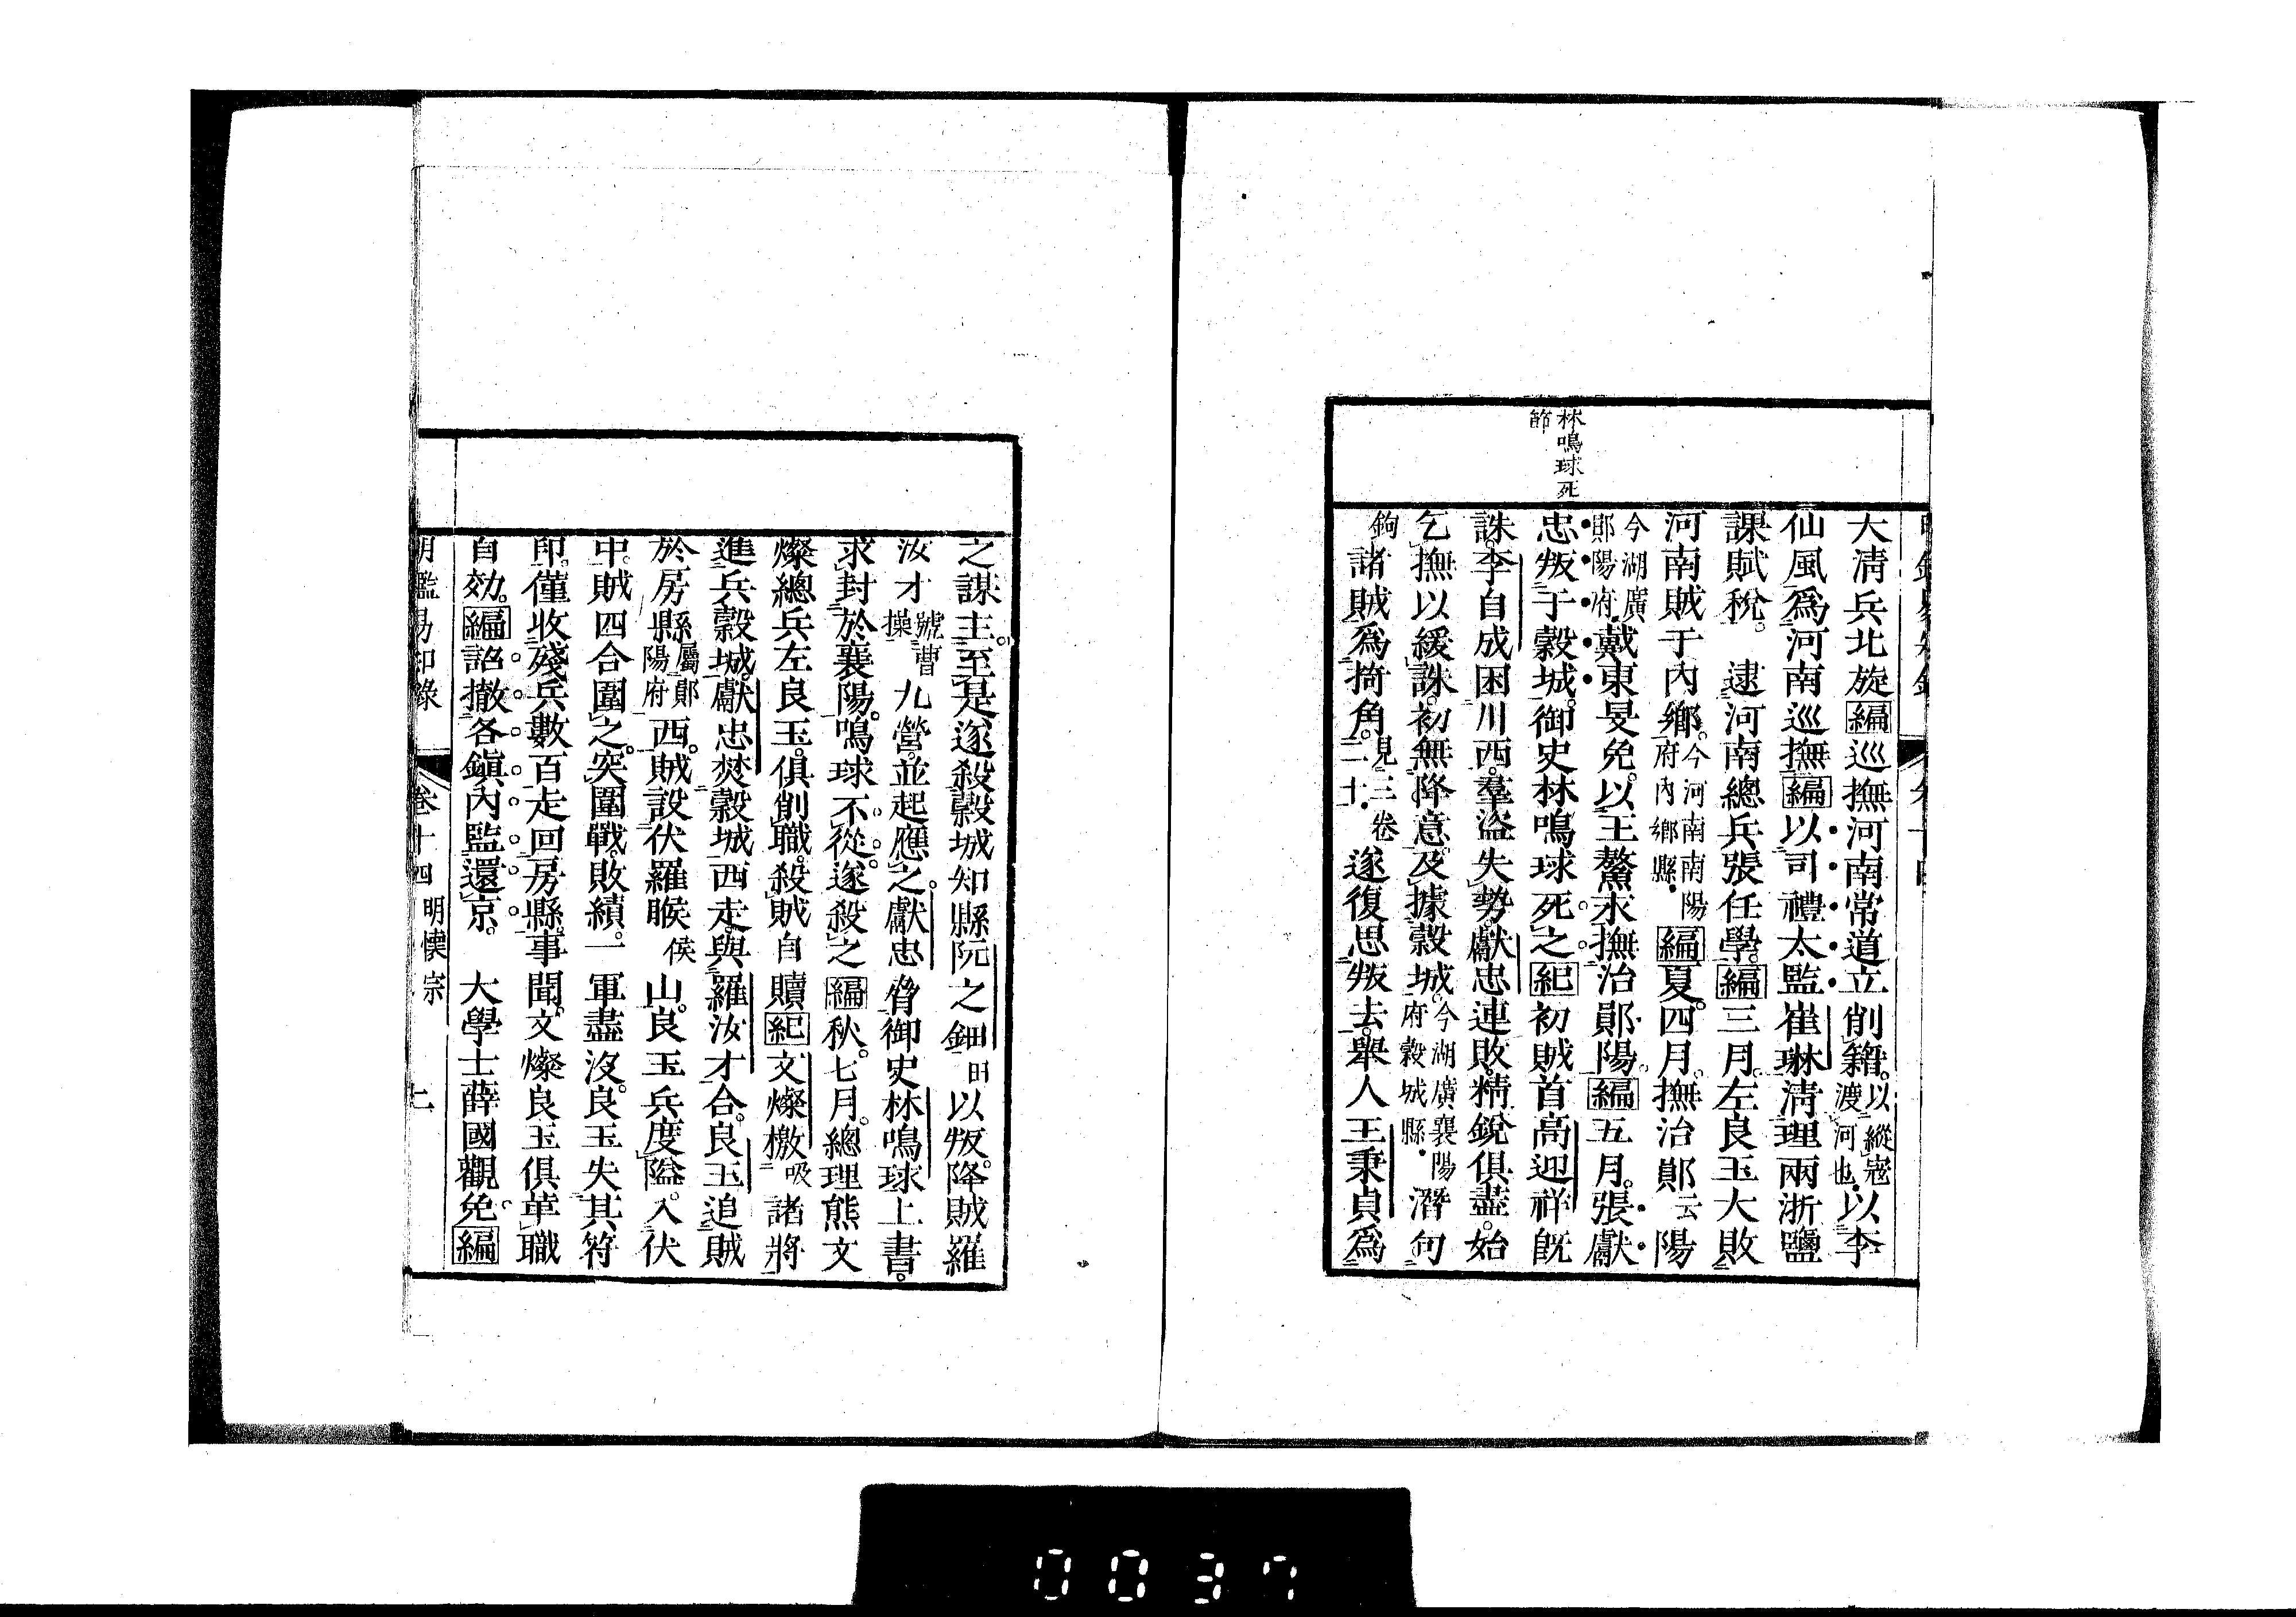 林鳴球死
節
大清兵北旋編巡撫河南常道立削籍。以縱寇渡河也以李
仙風爲河南巡撫編以司禮太監崔琳清理兩浙鹽
課賦稅。 逮河南總兵張任學。編三月。左良玉大敗
河南賊于內鄉。今河南南陽府內鄉縣編夏。四月。撫治鄖云陽
今湖廣鄖陽府戴東旻免。以王鰲永撫治鄖陽。編五月。張獻
忠叛于穀城。御史林鳴球死之。紀初賊首高迎祥旣
誅。李自成困川西。羣盜失勢。獻忠連敗。精銳俱盡。始
乞撫以緩誅。初無降意。及據穀城。今湖廣襄陽府穀城縣潛句
鉤諸賊爲掎角。見三卷二十遂復思叛去。舉人王秉貞爲
之謀主。至是遂殺穀城知縣阮之鈿田以叛。降賊羅
汝才號曹操九營。並起應之。獻忠脅御史林鳴球上書。
求封於襄陽。鳴球不從。遂殺之編秋。七月。總理熊文
燦總兵左良玉。俱削職。殺賊自贖紀文燦檄吸諸將
進兵穀城。獻忠焚穀城西走。與羅汝才合。良玉追賊
於房縣屬鄖陽府西。賊設伏羅㬋侯山。良玉兵度隘。入伏
中。賊四合圍之。突圍戰。敗績。一軍盡沒。良玉失其符
印。僅收殘兵數百走回房縣。事聞。文燦良玉俱革職
自効。編詔撤各鎭內監還京。 大學士薛國觀免。編
明鑑易知錄 卷十四 明懷宗 七
0037